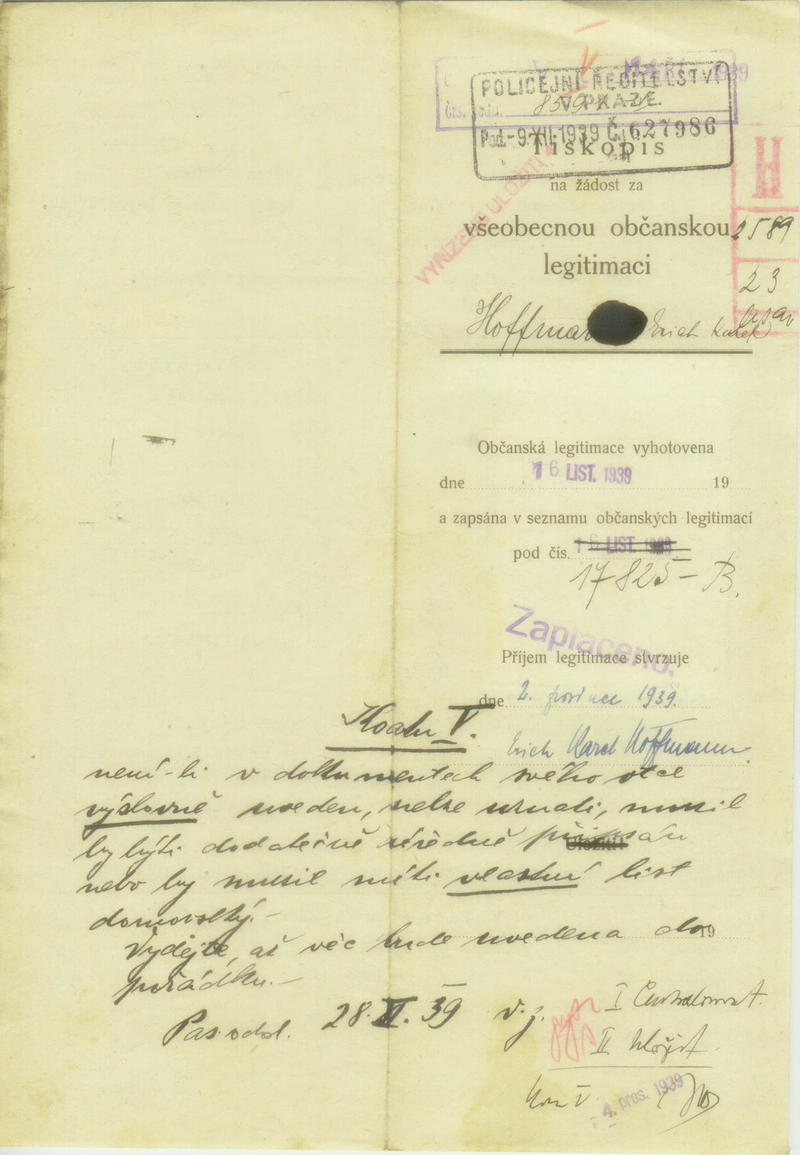 POLICEJNÍ ŘEDITELSTVÍ
V PRAZE.
Pod. -9.XII.1939 Č.j. 627986
Tiskopis
na žádost za
všeobecnou občanskou
legitimaci
H
2589
23
Hoffman Erich Karel
Občanská legitimace vyhotovena
dne 16 LIST. 1939 19
a zapsána v seznamu občanských legitimací
pod čís. 16 LIST. 1939
17825-B.
Zaplaceno.
Příjem legitimace stvrzuje
dne 2. prosince 1939.
Erich Karel Hoffmann
V.
není-li v dokumentech svého otce
výslovně uveden, nelze uznati, musil
by býti dodatečně úředně připsán
nebo by musil míti vlastní list
domovský.-
Vydejte, až věc bude uvedena do 19
pořádku.-
Pas. odd. 28. XI. 39 v. z.
I
II Uložit
4. pros. 1939